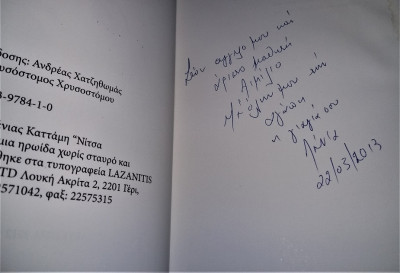 δοσης: Ανδρέας Χατζηθωμάς
υσόστομος Χρυσοστόμου
-9784-1-0
ένιας Καττάμη “Νίτσα
μια ηρωίδα χωρίς σταυρό και
θηκε στα τυπογραφεία LAZANITIS
TD Λουκή Ακρίτα 2, 2201 Γέρι,
2571042, φαξ: 22575315
Στον άγγελο μου και
άριστο μαθητή
Με όλη μου την
αγάπη
η γιαγιά σου
22/03/2013